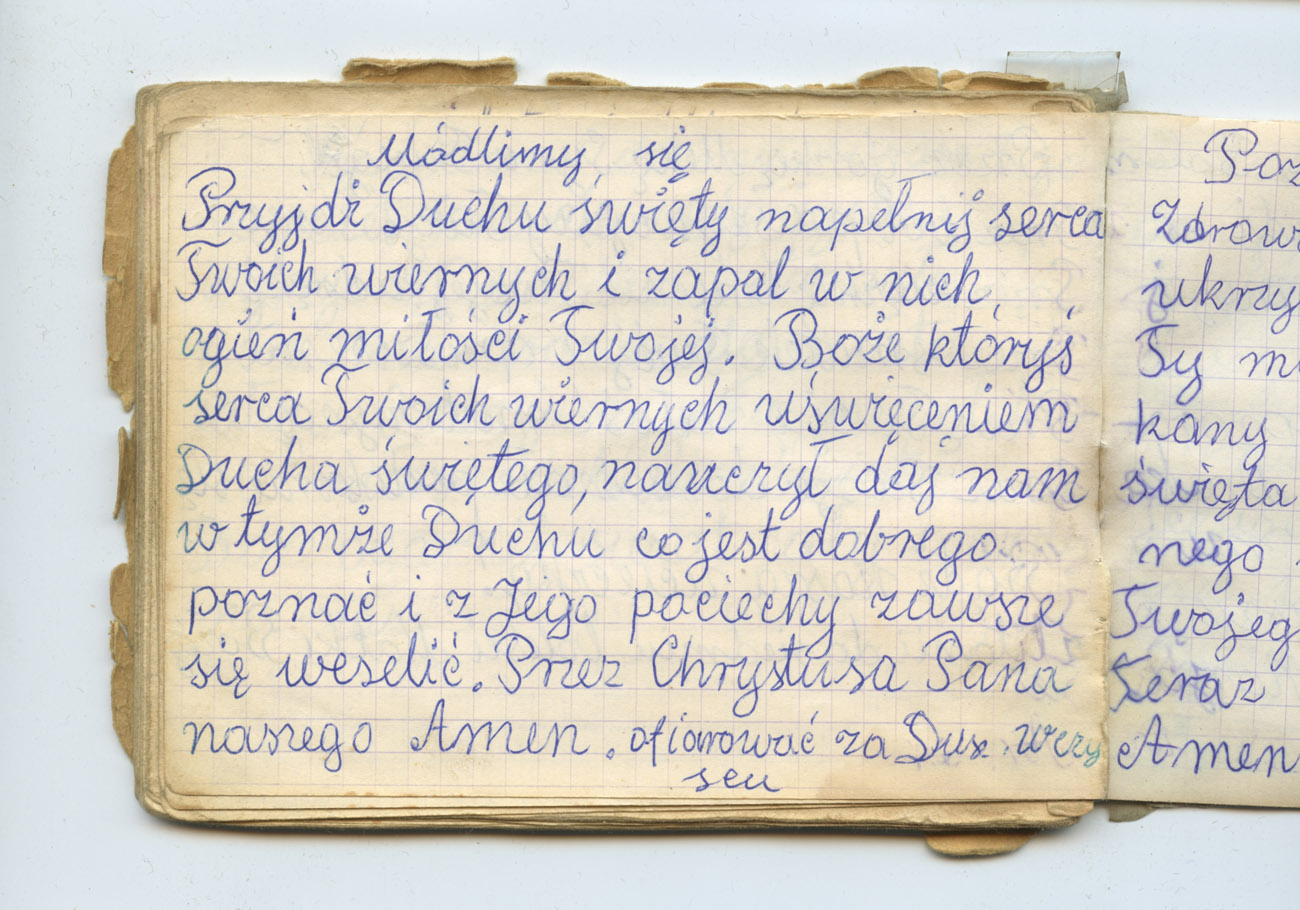 Módlimy się
Przyjdź Duchu święty napełnij serca
Twoich wiernych i zapal w nich
ogień miłości Twojej. Boże któryś
serca Twoich wiernych uświęceniem
Ducha świętego, nauczył daj nam
w tymże Duchu co jest dobrego
poznać i z Jego pociechy zawsze
się weselić. Przez Chrystusa Pana
naszego Amen. ofiarować za Dusz. w czy
scu
Poz
Zdrow
ukrzy
Ty m
kany
święta
nego
Twojeg
teraz
Amen